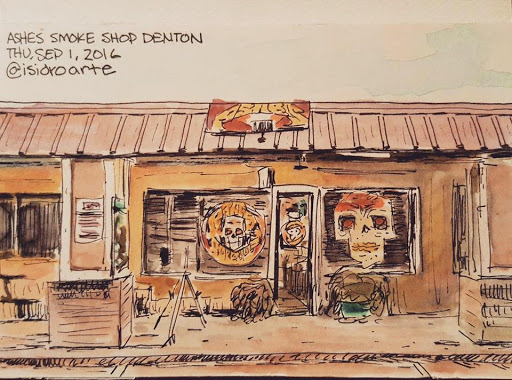 ASHES SMOKE SHOP DENTON
THU, SEP 1, 2016
@isidroarte